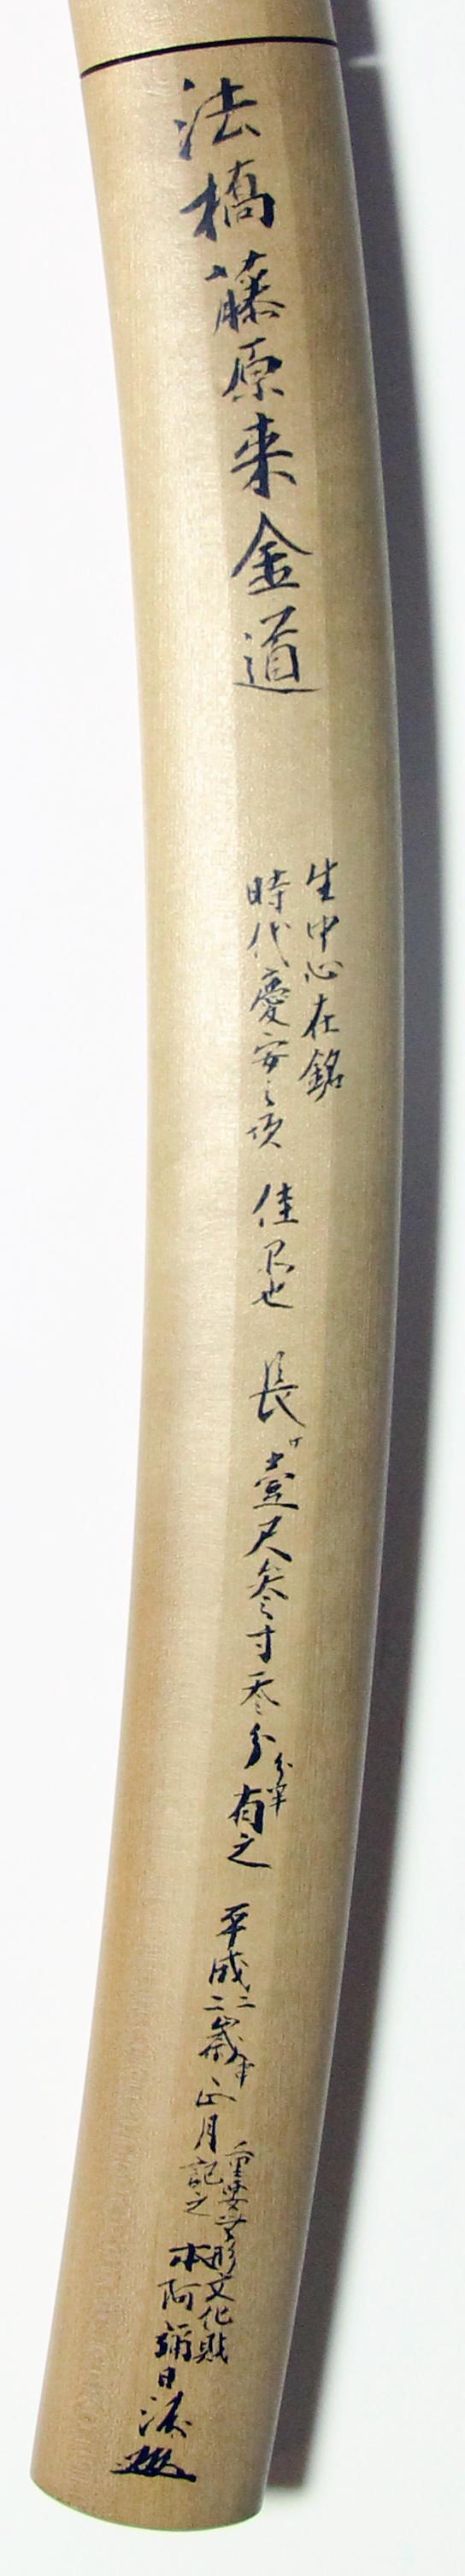 法橋藤原来金道
生中心在銘
時代慶安之頃 佳作也 長サ壹尺参寸参分有之
分半
平成二二歳 正月
記之
重要無形文化財
本阿彌日洲